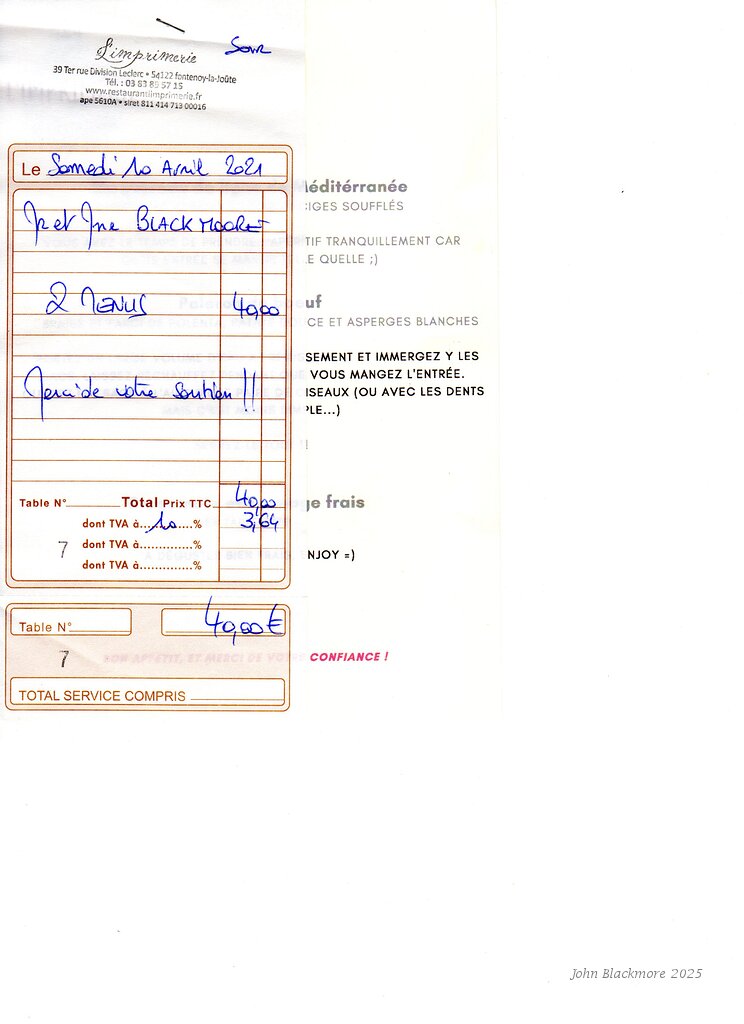 L'imprimerie
Soir
39 Ter rue Division Leclerc • 54122 fontenoy-la-Joûte
Tél. : 03 83 89 57 15
www.restaurantlimprimerie.fr
ape 5610A • siret 811 414 713 00016
Le Samedi 10 Avril 2021
Mr et Mme BLACKMOORE
2 MENUS 40,00
Merci de votre soutien !!
Table N° Total Prix TTC 40,00
dont TVA à 10 % 3,64
7 dont TVA à.............%
dont TVA à.............%
Table N° 40,00€
7
TOTAL SERVICE COMPRIS
Méditérranée
IGES SOUFFLÉS
TIF TRANQUILLEMENT CAR
E QUELLE ;)
uf
CE ET ASPERGES BLANCHES
SEMENT ET IMMERGEZ Y LES
VOUS MANGEZ L'ENTRÉE.
ISEAUX (OU AVEC LES DENTS
PLE...)
ge frais
NJOY =)
BON APPÉTIT, ET MERCI DE VOTRE CONFIANCE !
John Blackmore 2025